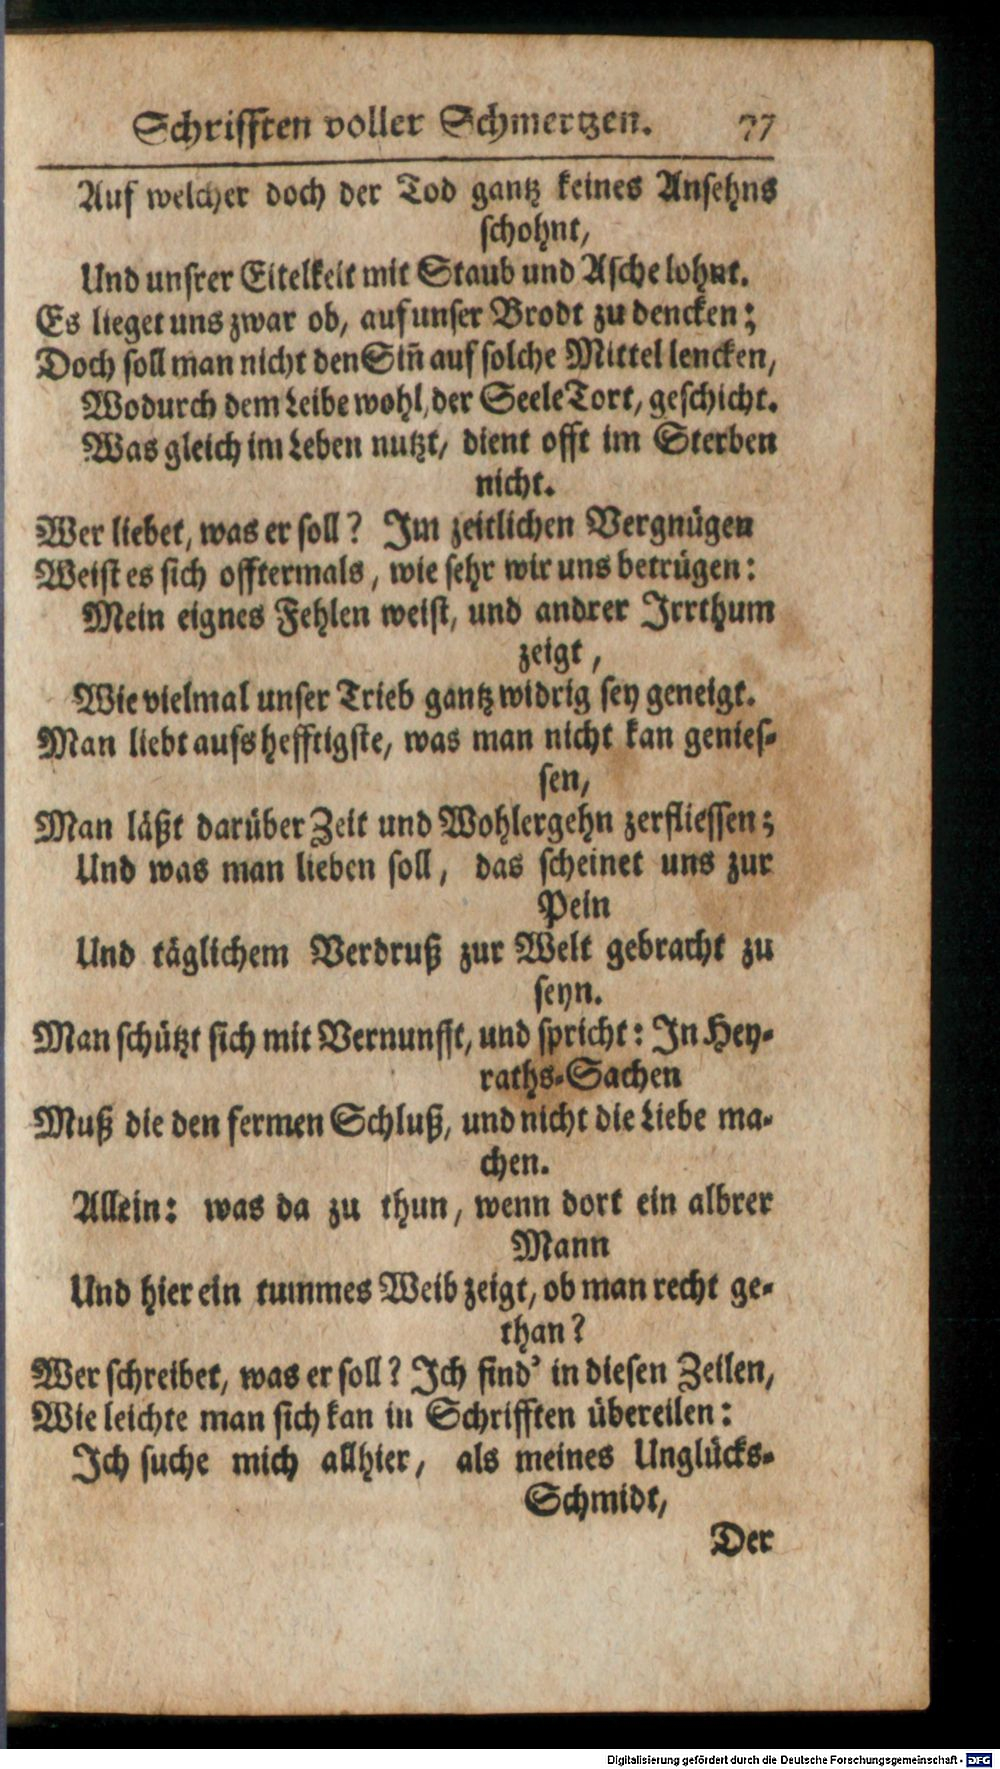 Schrifften voller Schmertzen. 77
Auf welcher doch der Tod gantz keines Ansehns
schohnt,
Und unsrer Eitelkeit mit Staub und Asche lohnt.
Es lieget uns zwar ob, auf unser Brodt zu dencken;
Doch soll man nicht den Sin̄ auf solche Mittel lencken,
Wodurch dem Leibe wohl, der Seele Tort, geschicht.
Was gleich im Leben nutzt, dient offt im Sterben
nicht.
Wer liebet, was er soll? Im zeitlichen Vergnügen
Weist es sich offtermals, wie sehr wir uns betrügen:
Mein eignes Fehlen weist, und andrer Irrthum
zeigt,
Wie vielmal unser Trieb gantz widrig sey geneigt.
Man liebt aufs hefftigste, was man nicht kan genies-
sen,
Man läßt darüber Zeit und Wohlergehn zerfliessen;
Und was man lieben soll, das scheinet uns zur
Pein
Und täglichem Verdruß zur Welt gebracht zu
seyn.
Man schützt sich mit Vernunfft, und spricht: In Hey-
raths-Sachen
Muß die den fermen Schluß, und nicht die Liebe ma-
chen.
Allein: was da zu thun, wenn dort ein albrer
Mann
Und hier ein tummes Weib zeigt, ob man recht ge-
than?
Wer schreibet, was er soll? Ich find' in diesen Zeilen,
Wie leichte man sich kan in Schrifften übereilen:
Ich suche mich allhier, als meines Unglücks-
Schmidt,
Der
Digitalisierung gefördert durch die Deutsche Forschungsgemeinschaft - DFG